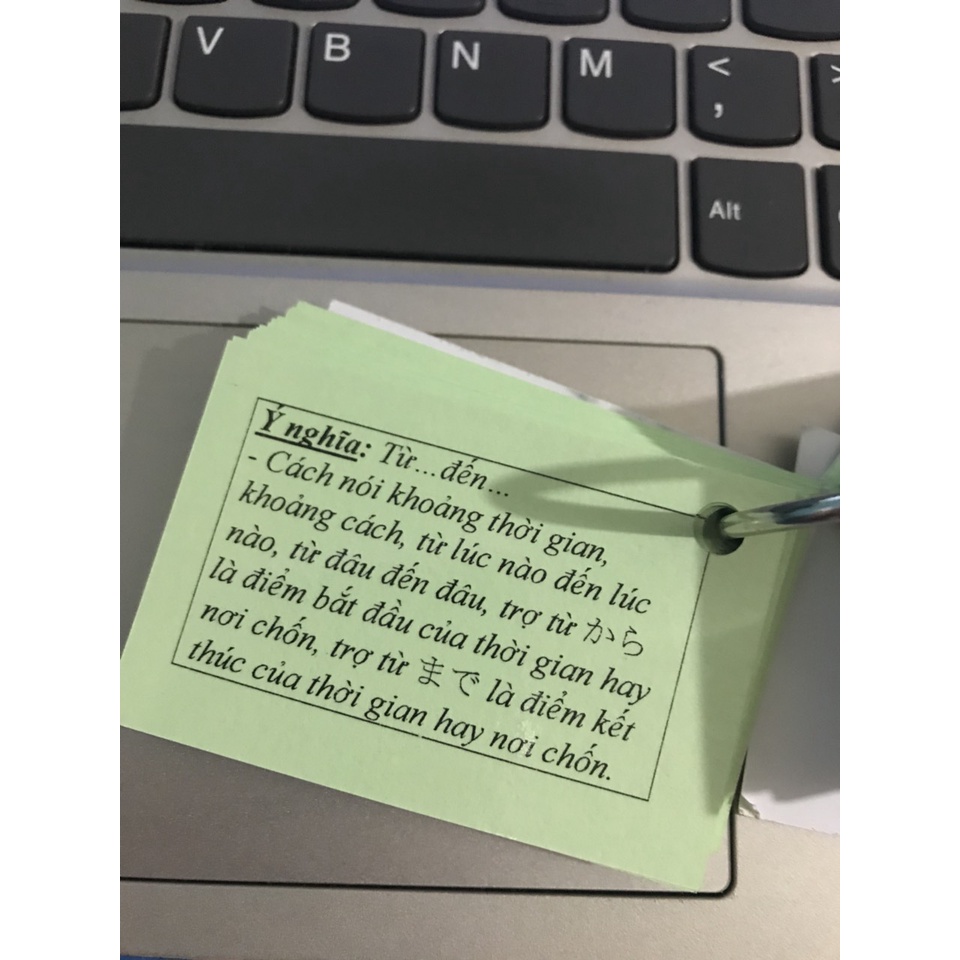 V B N M < ,
Alt
Ý nghĩa: Từ...đến...
- Cách nói khoảng thời gian,
khoảng cách, từ lúc nào đến lúc
nào, từ đâu đến đâu, trợ từ から
là điểm bắt đầu của thời gian hay
nơi chốn, trợ từ まで là điểm kết
thúc của thời gian hay nơi chốn.